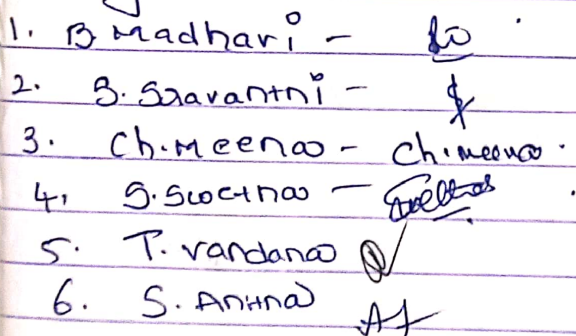 1. B Madhari -
2. B. Sravanthi - $
3. Ch. Meena - Ch. meena.
4. S. Swetha - Swetha
5. T. Vandana
6. S. Anitha